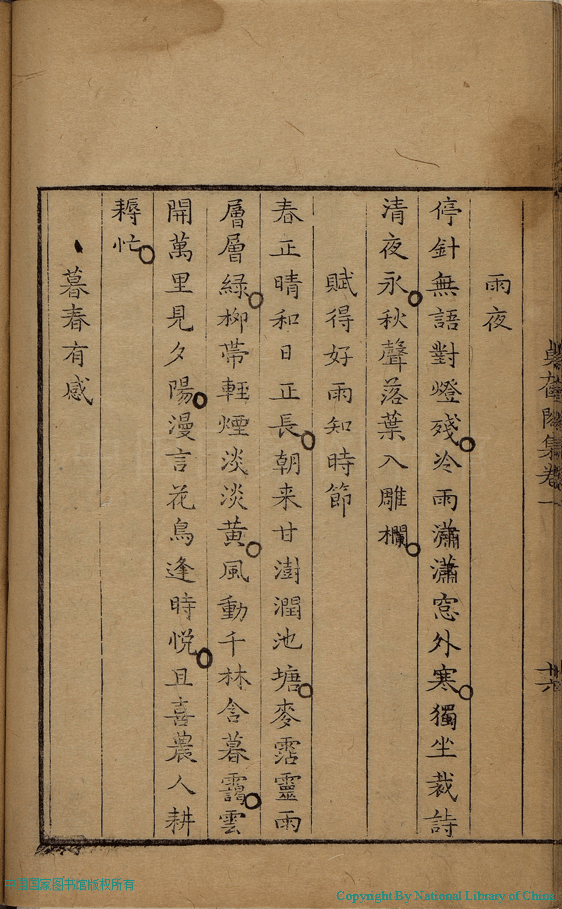 集卷一
雨夜
停針無語對燈殘冷雨瀟瀟窓外寒獨坐裁詩
清夜永秋聲落葉入雕欄
賦得好雨知時節
春正晴和日正長朝来甘澍潤池塘麥霑靈雨
層層綠柳帶輕煙淡淡黃風動千林含暮靄雲
開萬里見夕陽漫言花鳥逢時悦且喜農人耕
耨忙
暮春有感
中国国家图书馆版权所有
Copyright By National Library of China